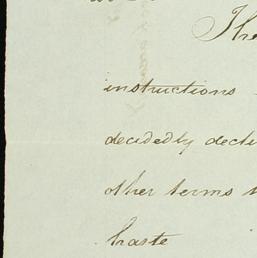 The
instructions
decidedly decli
other terms t
haste